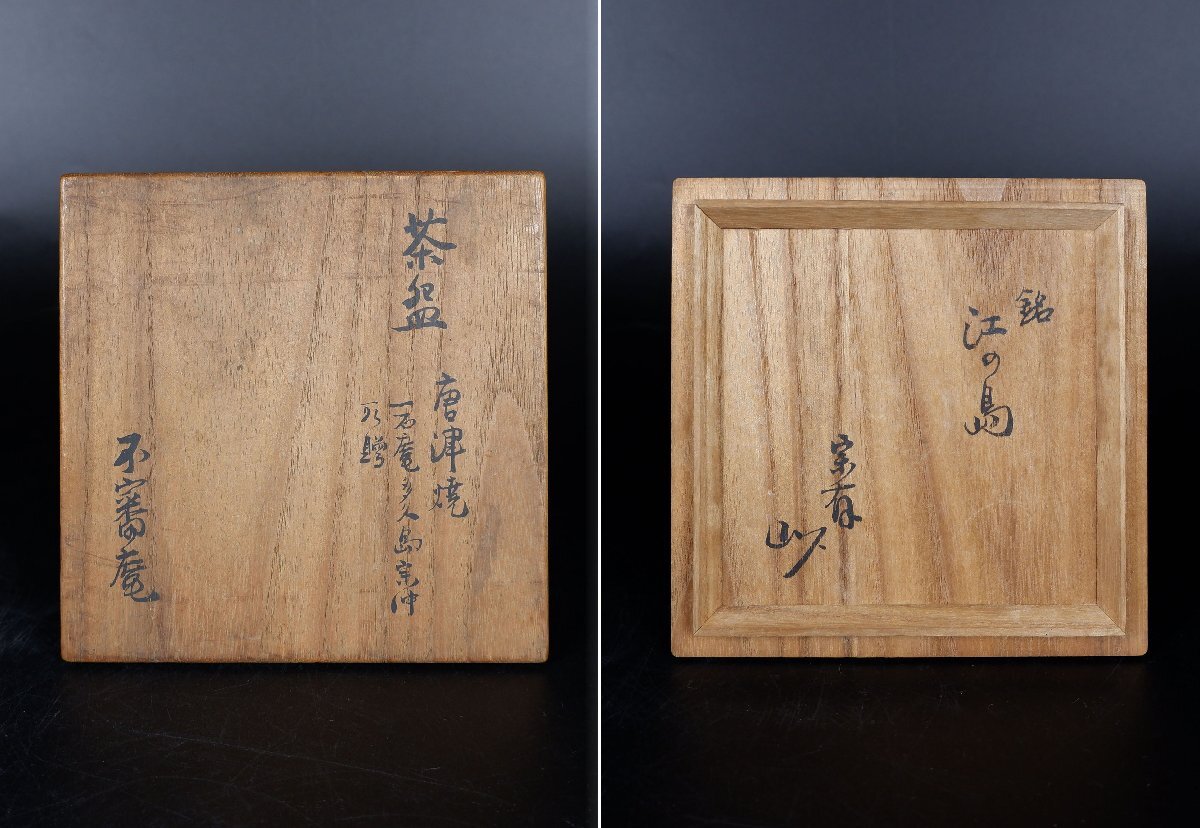 茶盌
唐津燒
一石庵多久島宗沖
所贈
不審菴
銘
江の島
宗有